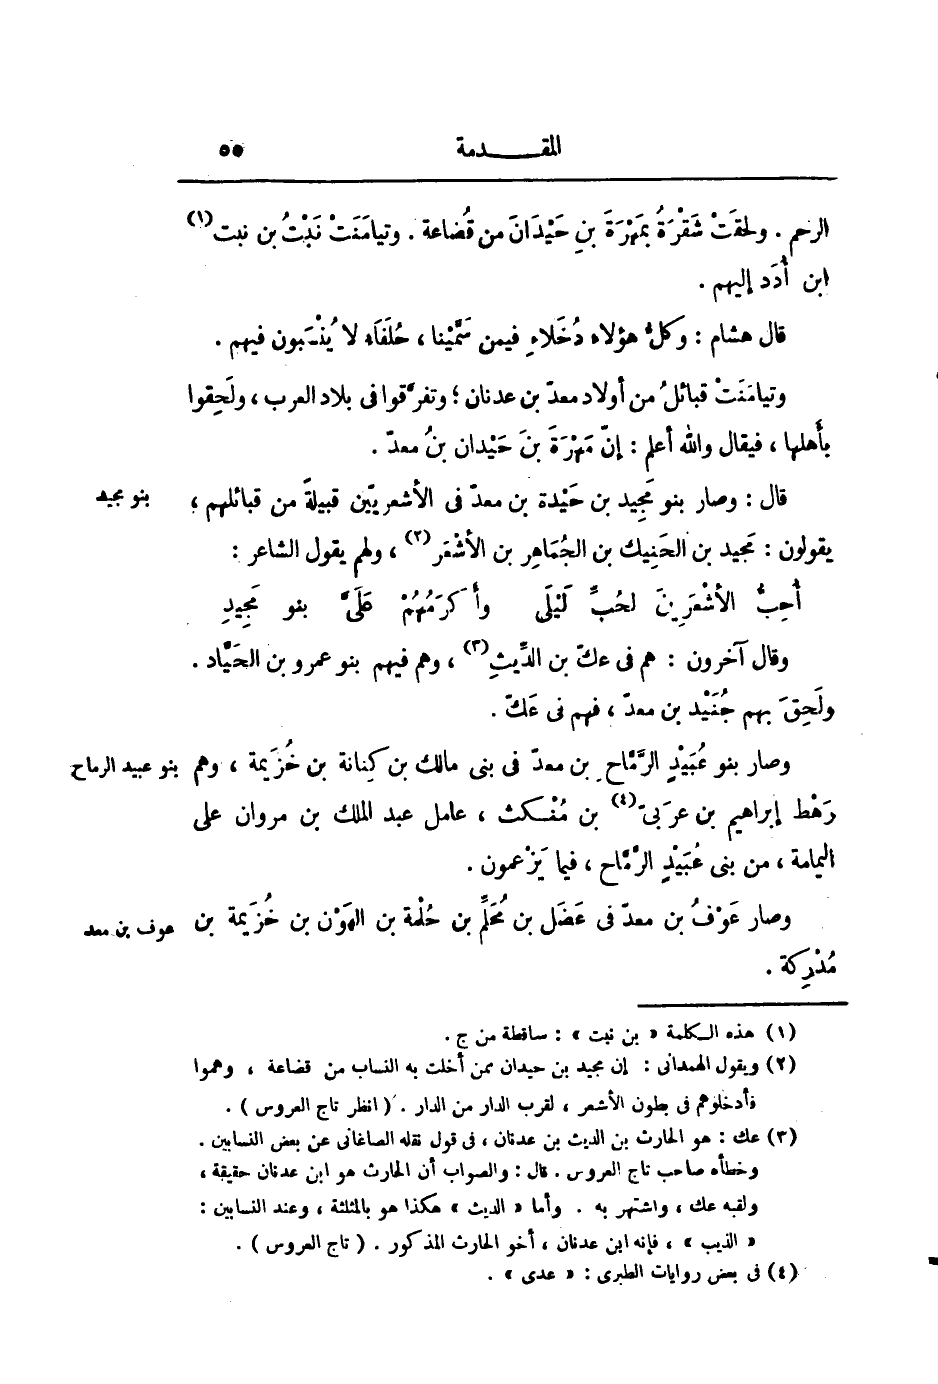 المقـــدمة ٥٥
الرحم . ولحقَتْ شَقْرَةُ بمَهْرَةَ بنِ حَيْدَانَ من قُضاعة . وتيامَنَتْ نَبْتُ بن نبت(١)
ابن أُدَد إليهم .
قال هشام : وكلُّ هؤلاء دُخَلاءِ فيمن سَمَّيْنا ، حُلَفَاء لا يُنْسَبون فيهم .
وتيامَنَتْ قبائلُ من أولاد معدّ بن عدنان ؛ وتفرَّقوا فى بلاد العرب ، ولَحِقوا
بأَهلها ، فيقال والله أعلم : إنّ مَهْرَةَ بنَ حَيْدان بنُ معدّ .
قال : وصار بنو مَجِيد بن حَيْدة بن معدّ فى الأشعريّين قبيلةً من قبائلهم ؛
بنو مجيد
يقولون : مَجيد بن الحَنِيك بن الجُمَاهِر بن الأشْعَر(٢) ، ولهم يقول الشاعر :
أُحِبُّ الأشْعَرِينَ لحُبِّ لَيْلَى وأَكرَمُهُمْ عَلَىَّ بنو مَجِيدِ
وقال آخرون : هم فى عكّ بن الدِّيثِ(٣) ، وهم فيهم بنو عمرو بن الحَيَّاد .
ولَحِقَ بهم جُنَيْد بن معدّ ، فهم فى عَكّ .
وصار بنو عُبَيْدٍ الرَّمَّاح بن معدّ فى بنى مالك بن كِنانة بن خُزَيمة ، وهم
بنو عبيد الرماح
رَهْط إبراهيم بن عربىّ(٤) بن مُنْكث ، عامل عبد الملك بن مروان على
اليمامة ، من بنى عُبَيْدٍ الرَّمَّاح ، فيما يَزْعمون .
وصار عَوْفُ بن معدّ فى عَضَل بن مُحَلِّم بن حُلْمة بن الهَوْن بن خُزَيمة بن
عوف بن معد
مُدْرِكة .
(١) هذه الكلمة « بن نبت » : ساقطة من ج .
(٢) ويقول الهمدانى : إن مجيد بن حيدان ممن أخلت به النساب من قضاعة ، وهموا
فأدخلوهم فى بطون الأشعر ، لقرب الدار من الدار . ( انظر تاج العروس ) .
(٣) عك : هو الحارث بن الديث بن عدنان ، فى قول نقله الصاغانى عن بعض النسابين .
وخطأه صاحب تاج العروس . قال : والصواب أن الحارث هو ابن عدنان حقيقة ،
ولقبه عك ، واشتهر به . وأما « الديث » هكذا هو بالمثلثة ، وعند النسابين :
« الذيب » ، فإنه ابن عدنان ، أخو الحارث المذكور . ( تاج العروس ) .
(٤) فى بعض روايات الطبرى : « عدى » .